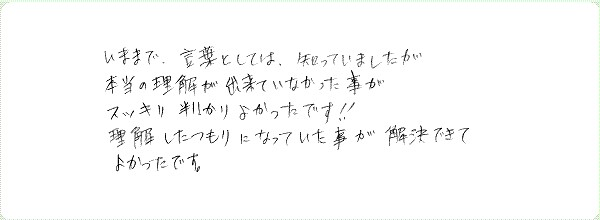 いままで、言葉としては、知っていましたが
本当の理解が出来ていなかった事が
スッキリ判かりよかったです!!
理解したつもりになっていた事が解決できて
よかったです。